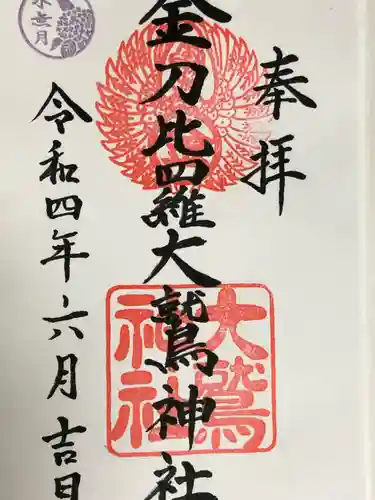 奉拝
金刀比羅大鷲神社
令和四年六月吉日
水無月
大鷲
神社